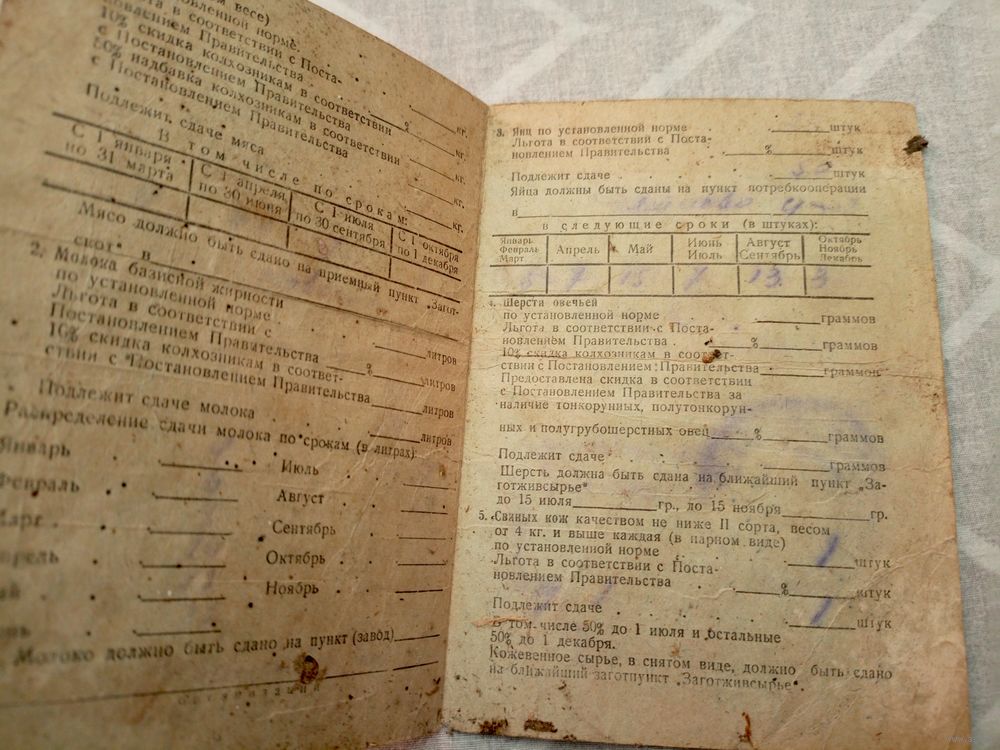 весе)
установленной норме.
Льгота в соответствии с Поста-
новлением Правительства
10% скидка колхозникам в соответствии
с Постановлением Правительства
% кг.
50% надбавка колхозникам в соответствии
с Постановлением Правительства
кг.
Подлежит сдаче мяса
кг.
В том числе по срокам:
кг.
С 1 января по 31 марта
С 1 апреля по 30 июня
С 1 июля по 30 сентября
С 1 октября по 1 декабря
Мясо должно быть сдано на приемный пункт „Загот-
скот“ в
2. Молока базисной жирности
по установленной норме
литров
Льгота в соответствии с
Постановлением Правительства % литров
10% скидка колхозникам в соответ-
ствии с Постановлением Правительства литров
Подлежит сдаче молока литров
Распределение сдачи молока по срокам (в литрах):
Январь Июль
Февраль Август
Март Сентябрь
Апрель Октябрь
Май Ноябрь
Молоко должно быть сдано на пункт (завод)
3. Яиц по установленной норме штук
Льгота в соответствии с Поста-
новлением Правительства % штук
Подлежит сдаче 50 штук
Яйца должны быть сданы на пункт потребкооперации
в
в следующие сроки (в штуках):
Январь Февраль Март
Апрель
Май
Июнь Июль
Август Сентябрь
Октябрь Ноябрь Декабрь
5 7 15 7 13 3
4. Шерсти овечьей
по установленной норме граммов
Льгота в соответствии с Поста-
новлением Правительства % граммов
10% скидка колхозникам в соответ-
ствии с Постановлением Правительства граммов
Предоставлена скидка в соответствии
с Постановлением Правительства за
наличие тонкорунных, полутонкорун-
ных и полугрубошерстных овец % граммов
Подлежит сдаче граммов
Шерсть должна быть сдана на ближайший пункт „За-
готживсырье“
до 15 июля гр., до 15 ноября гр.
5. Свиных кож качеством не ниже II сорта, весом
от 4 кг. и выше каждая (в парном виде)
по установленной норме 1 штук
Льгота в соответствии с Поста-
новлением Правительства % штук
Подлежит сдаче 1 штук
В том числе 50% до 1 июля и остальные
50% до 1 декабря.
Кожевенное сырье, в снятом виде, должно быть сдано
на ближайший заготпункт „Заготживсырье“.